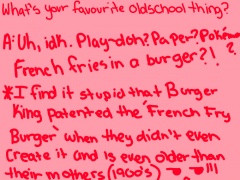 What's your favourite oldschool thing?
A: Uh, idk. Play-doh? Paper? Pokémon?
French fries in a burger?!
*I find it stupid that Burger
King patented the "French Fry
Burger" when they didn't even
create it and is even older than
their mothers (1900s)